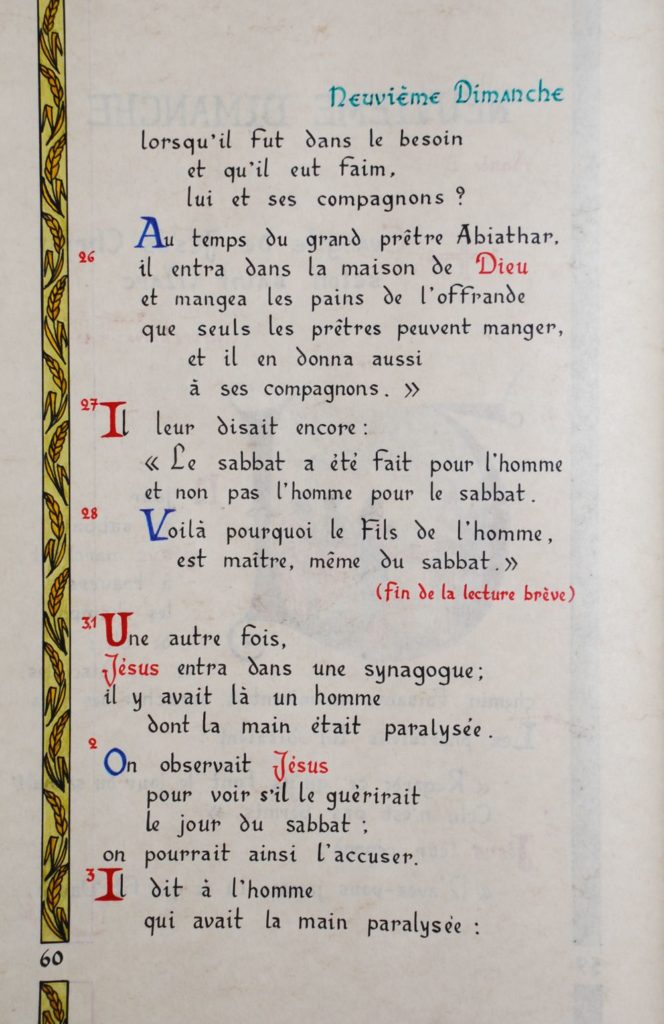 Neuvième Dimanche
lorsqu'il fut dans le besoin
et qu'il eut faim,
lui et ses compagnons ?
26 Au temps du grand prêtre Abiathar,
il entra dans la maison de Dieu
et mangea les pains de l'offrande
que seuls les prêtres peuvent manger,
et il en donna aussi
à ses compagnons. »
27 Il leur disait encore :
« Le sabbat a été fait pour l'homme
et non pas l'homme pour le sabbat.
28 Voilà pourquoi le Fils de l'homme,
est maître, même du sabbat. »
(fin de la lecture brève)
3,1 Une autre fois,
Jésus entra dans une synagogue;
il y avait là un homme
dont la main était paralysée.
2 On observait Jésus
pour voir s'il le guérirait
le jour du sabbat ;
on pourrait ainsi l'accuser.
3 Il dit à l'homme
qui avait la main paralysée :
60